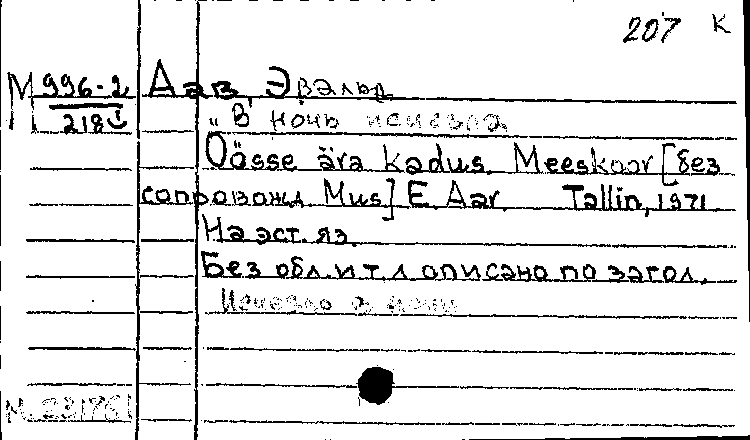 207 К
М 996-2 Аав, Эвальд
2181
"В ночь исчезла
Öösse ära kadus. Meeskoor [без
сопровожд. Mus] E. Aav. Tallin, 1971
На эст. яз.
Без обл. и т. л описано по загол.
Исчезло в ночи
М 231761